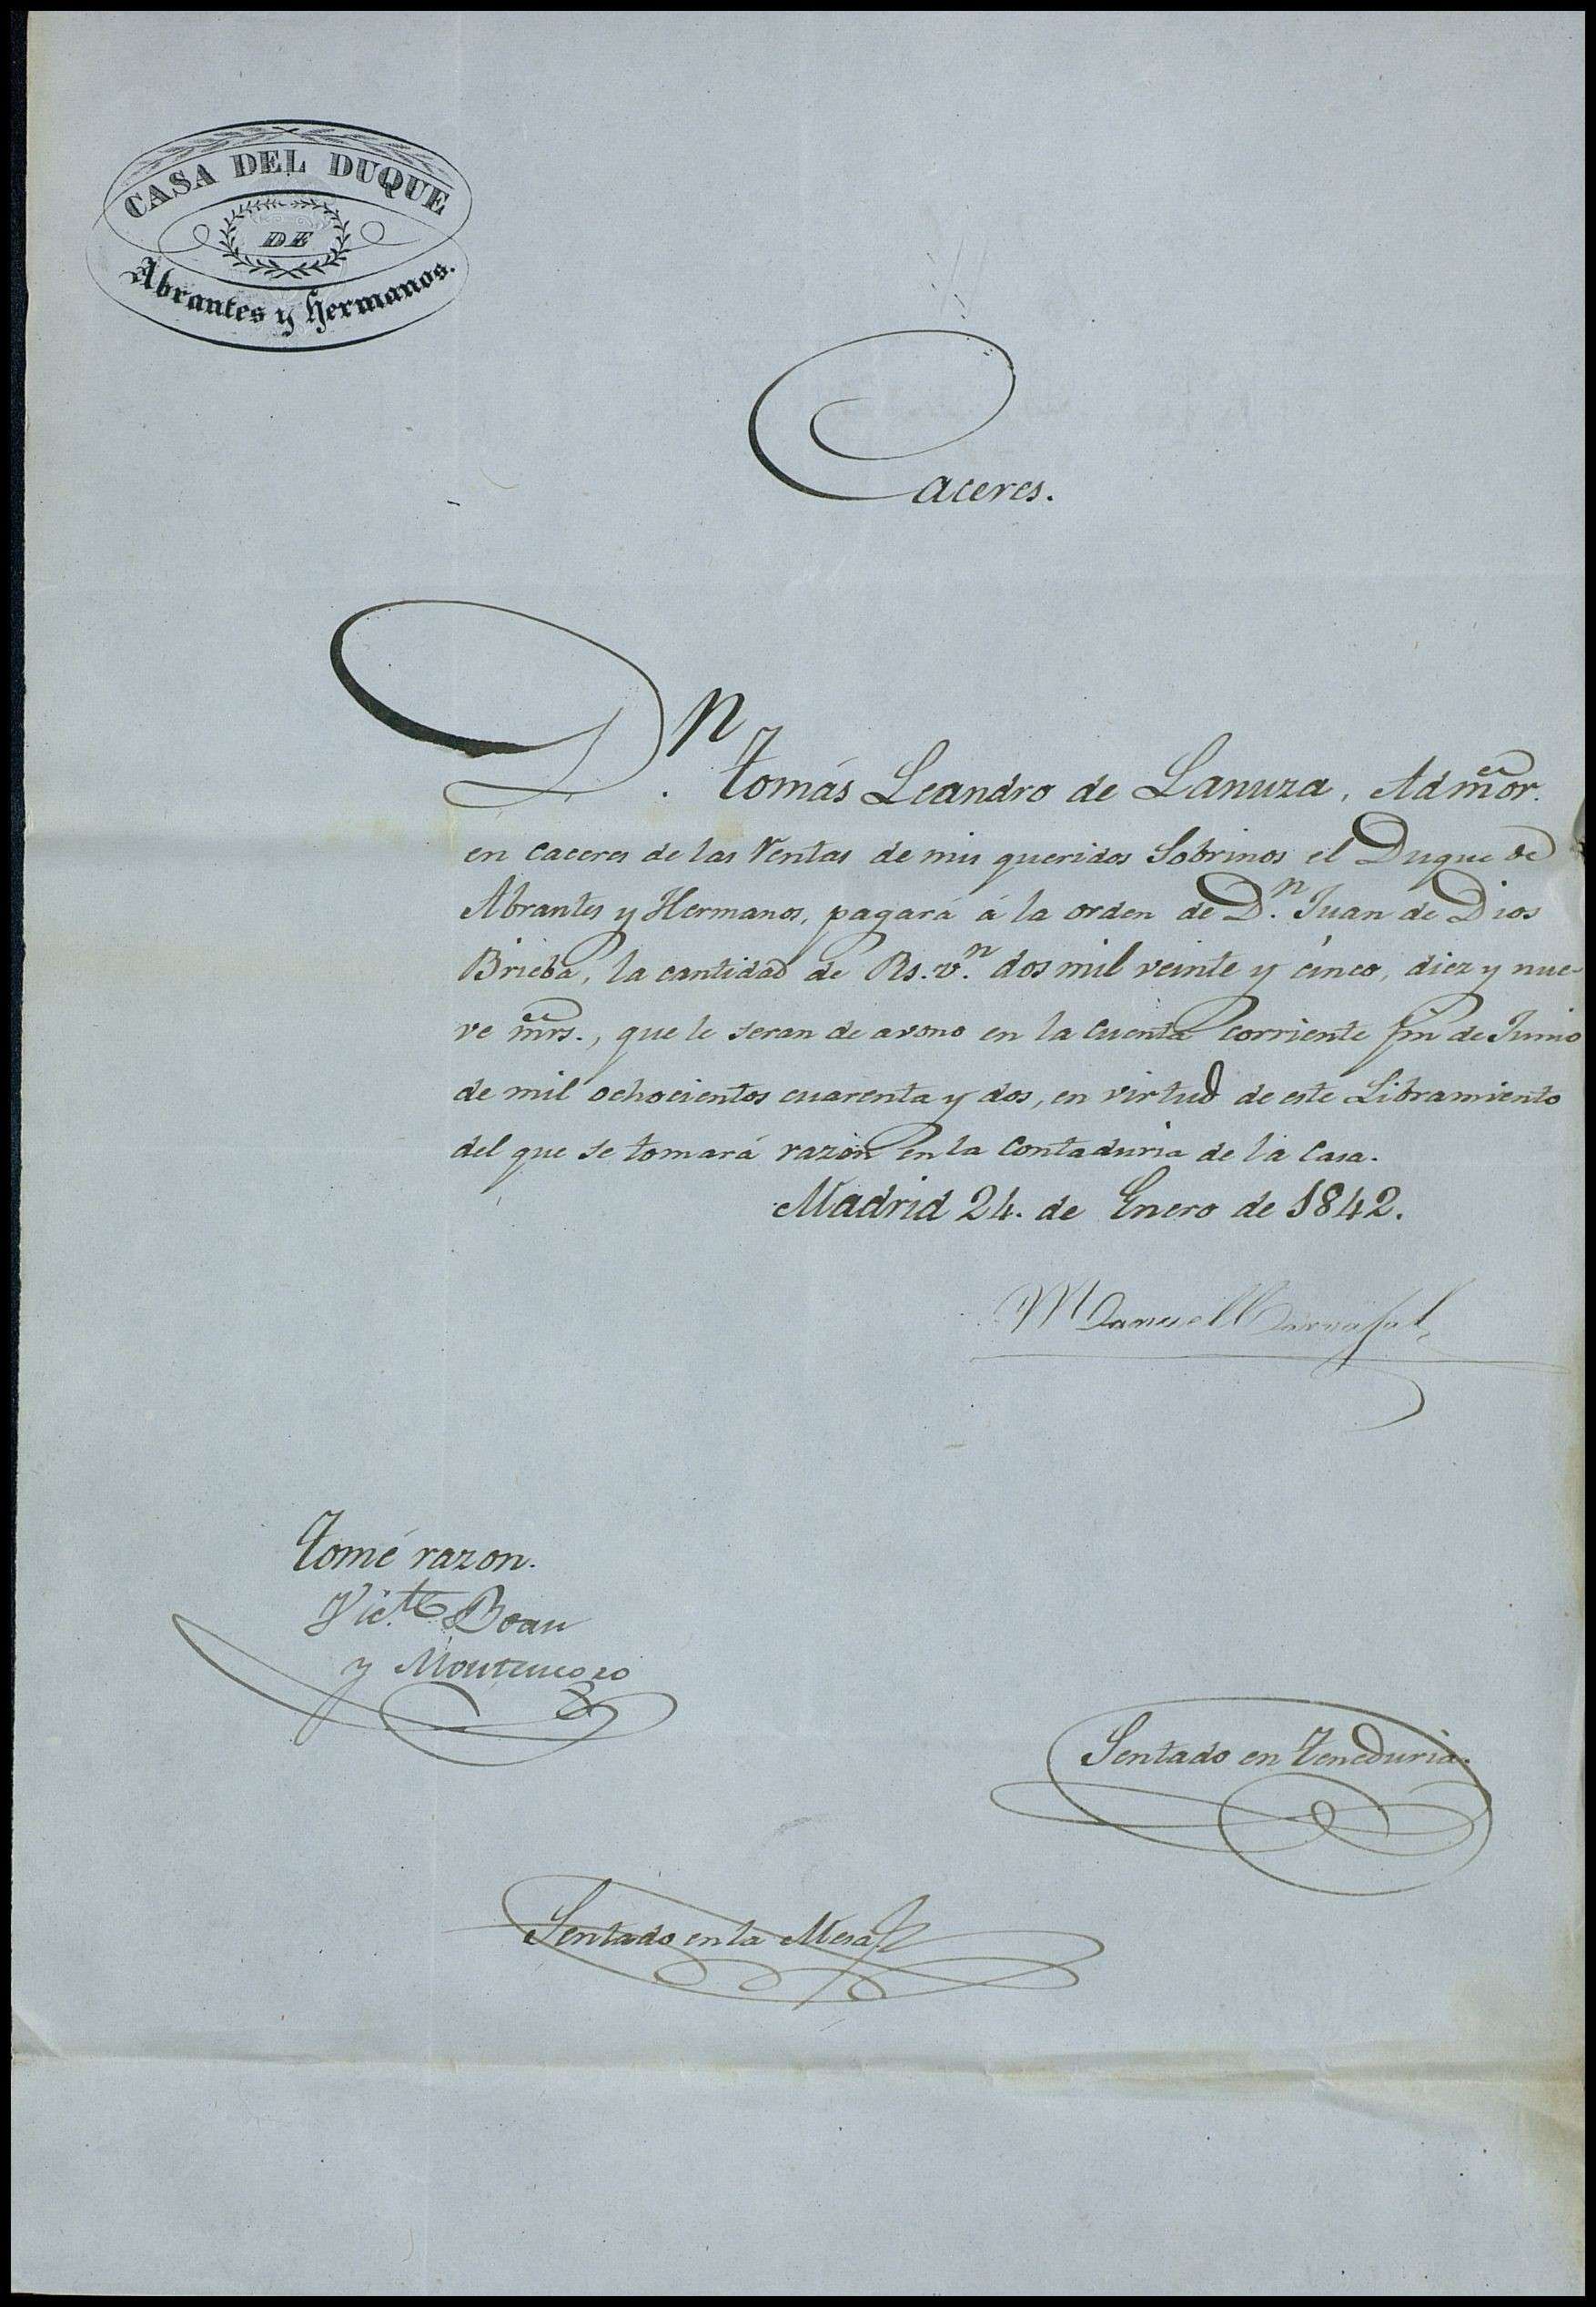 CASA DEL DUQUE
DE
Abrantes y Hermanos.
Caceres.
D.n Tomás Leandro de Lanuza, Admor.
en Caceres de las Ventas de mis queridos Sobrinos el Duque de
Abrantes y Hermanos, pagará á la orden de D.n Juan de Dios
Brieba, la cantidad de Rs. v.n dos mil veinte y cinco, diez y nue-
ve mrs., que le seran de avono en la Cuenta corriente fin de Junio
de mil ochocientos cuarenta y dos, en virtud de este Libramiento
del que se tomará razon en la Contaduria de la Casa.
Madrid 24. de Enero de 1842.
Manuel Carvajal
Tomé razon.
Vic.te Bean
y Montenegro
Sentado en Teneduria.
Sentado en la Mesa